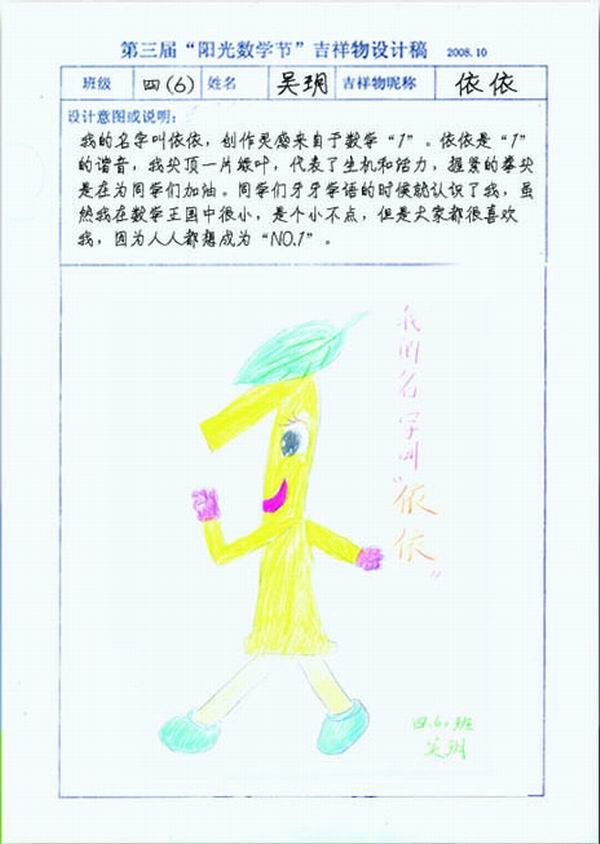 第三届“阳光数学节”吉祥物设计稿 2008.10
班级 四(6) 姓名 吴玥 吉祥物昵称 依依
设计意图或说明:
我的名字叫依依，创作灵感来自于数学“1”。依依是“1”
的谐音，我头顶一片绿叶，代表了生机和活力，握紧的拳头
是在为同学们加油。同学们牙牙学语的时候就认识了我，虽
然我在数学王国中很小，是个小不点，但是大家都很喜欢
我，因为人人都想成为“NO.1”。
我的名字叫“依依”
四.6.班
吴玥